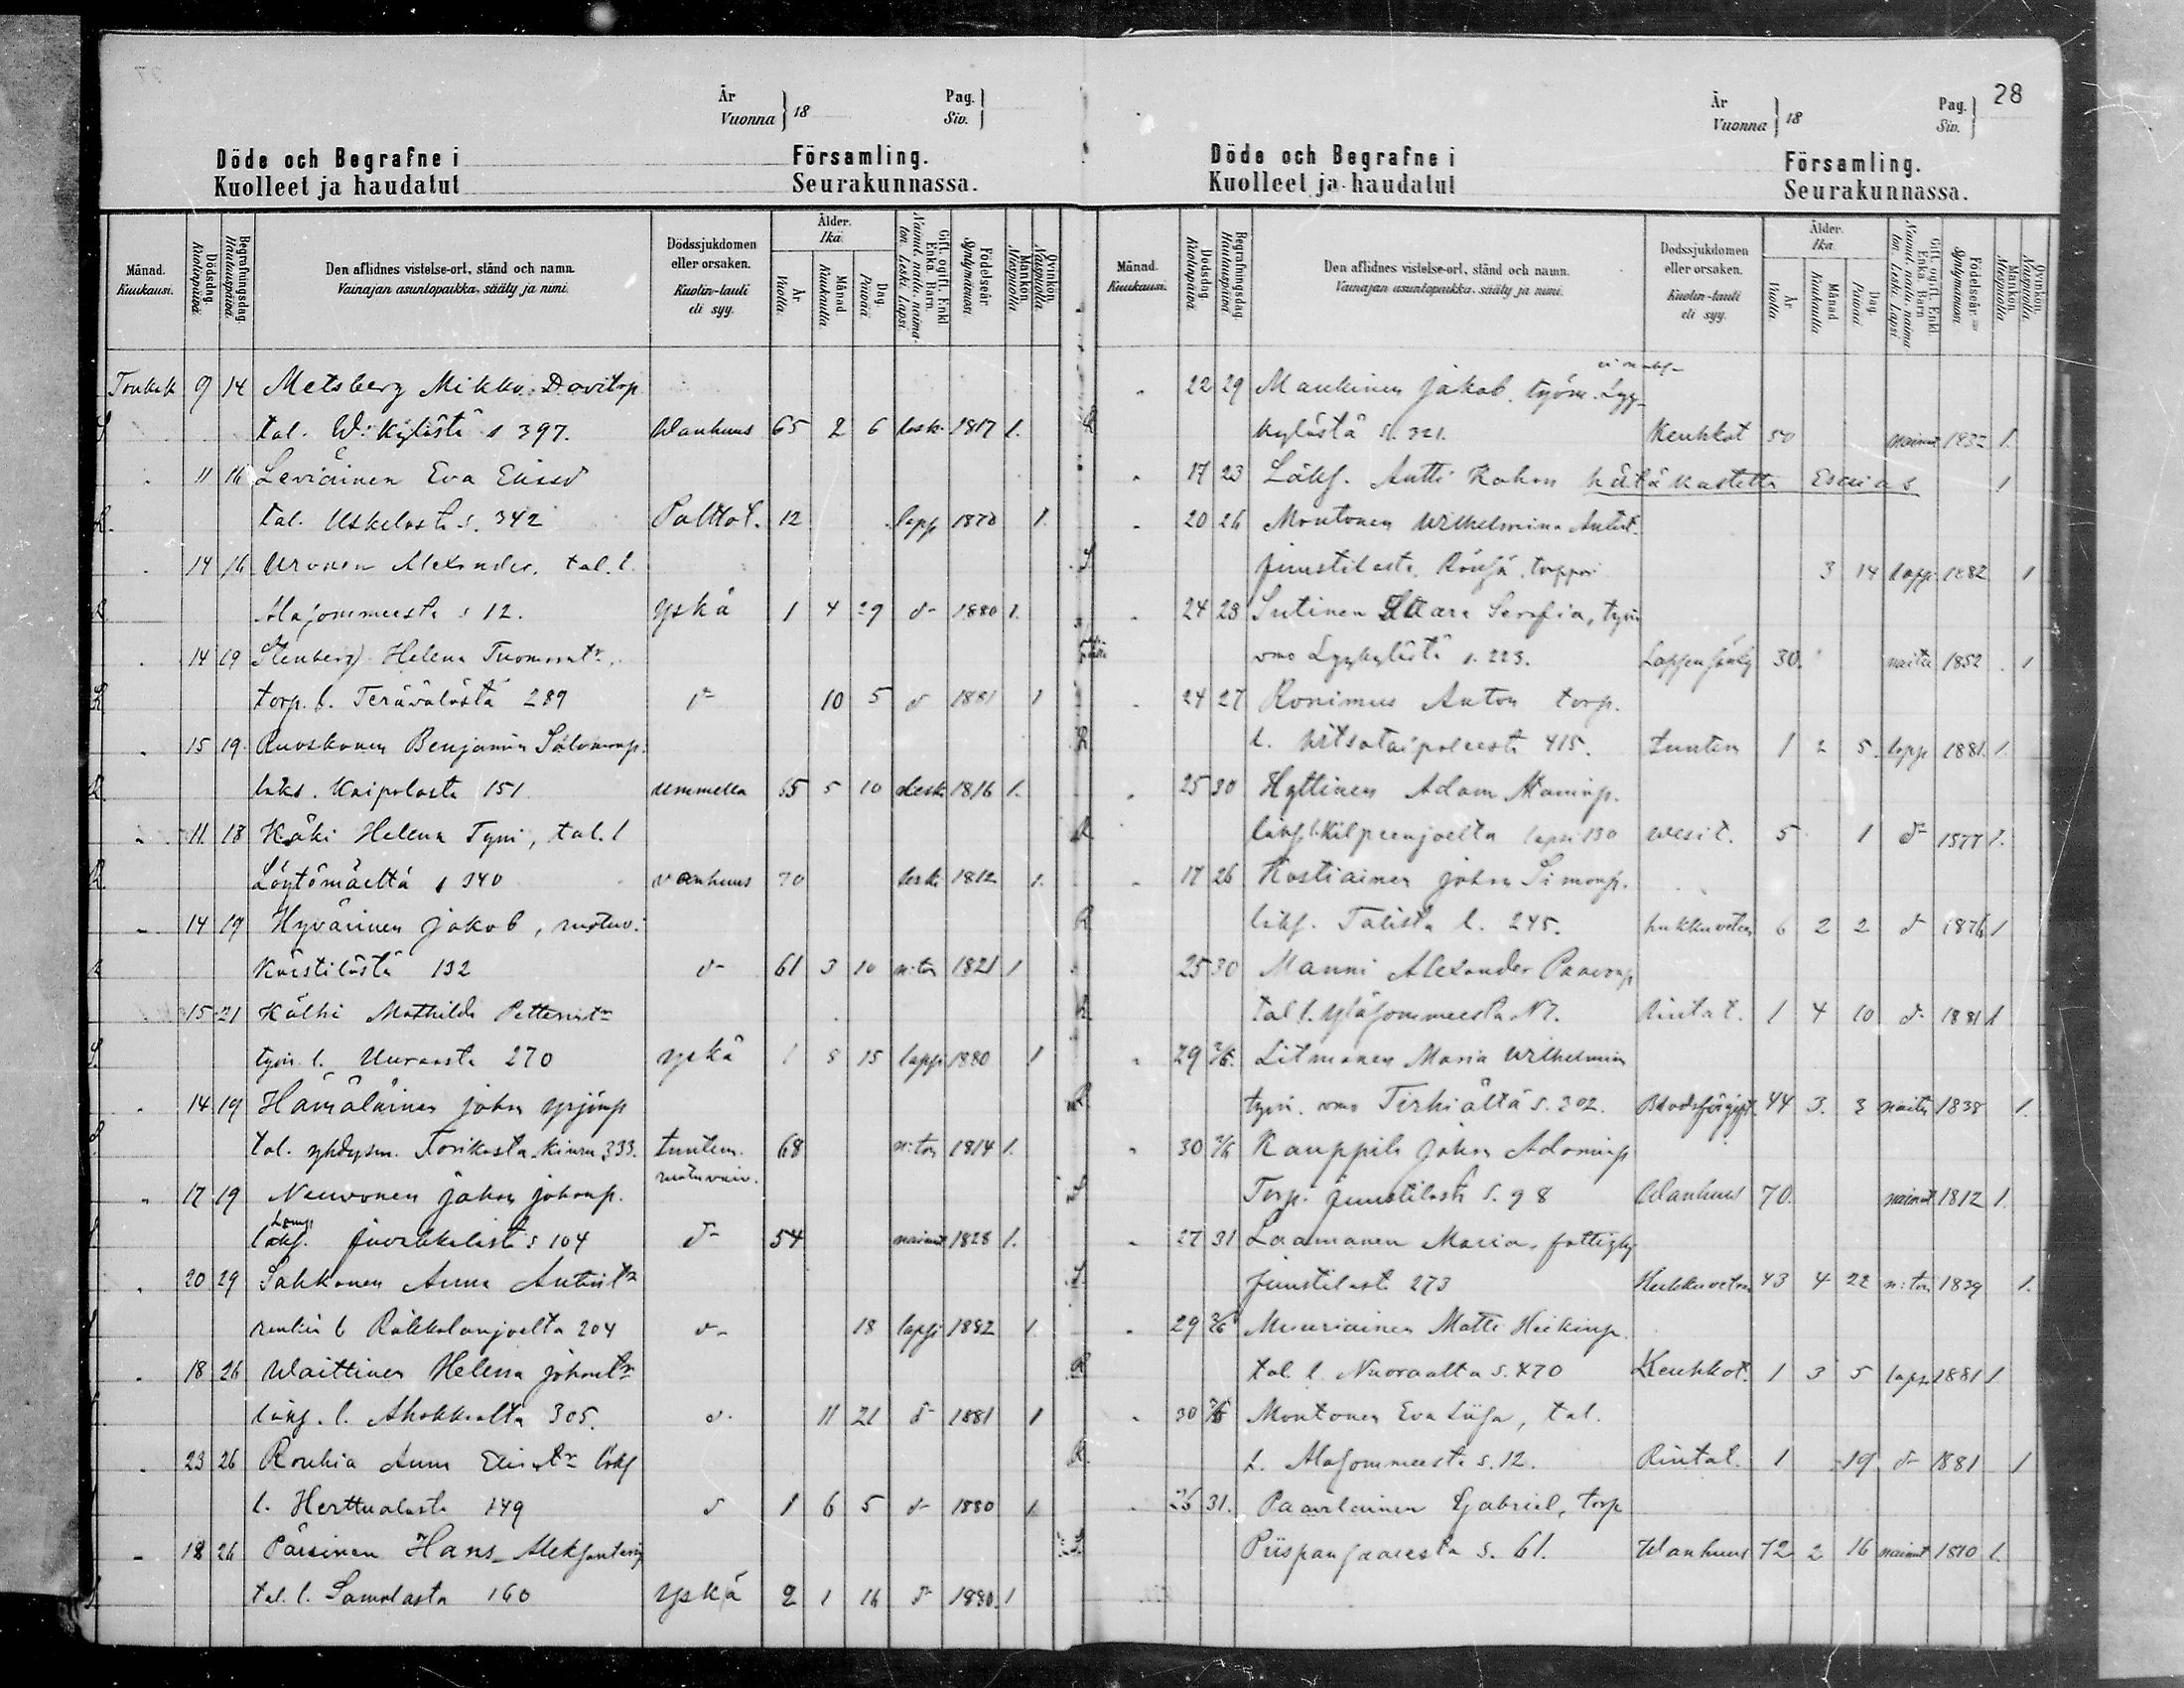 År
Vuonna } 18
Pag.
Siv. }
Döde och Begrafne i Församling.
Kuolleet ja haudatut Seurakunnassa.
Månad. Kuukausi.
Dödsdag. Kuolinpäivä.
Begrafningsdag. Hautauspäivä.
Den aflidnes vistelse-ort, stånd och namn. Vainajan asuntopaikka, sääty ja nimi.
Dödssjukdomen eller orsaken. Kuolin-tauti eli syy.
Ålder. Ikä.
År Vuotta. Månad Kuukautta. Dag. Päivää.
Gift, ogift. Enkl. Enka. Barn. Nainut, naitu, naimaton. Leski. Lapsi.
Födelseår Syntymävuosi.
Mankön. Miespuolia.
Qvinkön. Naispuolia.
Toukok 9 14 Metsberg Mikko Davitinp
tal. W: kylästä s 397. Wanhuus 65 2 6 lesk. 1817 1.
11 16 Leviäinen Eva
R. tal. Uskelasta s. 342 12 1870 1.
14 16 Urvonen Alexander, tal. l.
R Alasommeesta s 12. yskä 1 4 29 d- 1880 1.
14 19 Stenberg Helena Tuomaantr.
torp. l. Terävälästä 289 d- 10 5 d 1881 1
15 19 Ruoskonen Benjamin Salomonp.
R. läks. Kaipolasta 151 ummella 65 5 10 lesk. 1816 1.
11 18 Käki Helena Typi, tal. l
R Löytömäeltä s 340 vanhuus 70 leski 1812 1.
14 19 Hyvärinen Jakob,
Kärstilästä 132 d- 61 3 10 n:ton 1821 1
15 21 Kälhi Mathilda Petterintr
työm. l. Uuraasta 270 yskä 1 8 15 lapsi 1880 1
14 19 Hämäläinen Johan Yrjönp
tal. yhdysm. Torikasta Kiuru 333. tuntem. 68 n:ton 1814 1.
17 19 Neuvonen Johan Johanp.
Juvakkalasta s 104 d- 54 nainut 1828 1.
20 29 Sahkonen Anna Antintr
renkin l Räkkolanjoelta 204 d- 18 lapsi 1882 1.
18 26 Waittinen Helena Johantr
läks. l. Ahokkalta 305. d- 11 21 d- 1881 1
23 26 Rouhia Anna läks
l. Herttualasta 149 d 1 6 5 d- 1880 1.
18 26 Pärsinen Hans Aleksanterinp
tal. l. Samolasta 160 yskä 2 1 16 d- 1880 1
28
År
Vuonna } 18
Pag.
Siv. }
Döde och Begrafne i Församling.
Kuolleet ja haudatut Seurakunnassa.
Månad. Kuukausi.
Dödsdag. Kuolinpäivä.
Begrafningsdag. Hautauspäivä.
Den aflidnes vistelse-ort, stånd och namn. Vainajan asuntopaikka, sääty ja nimi.
Dödssjukdomen eller orsaken. Kuolin-tauti eli syy.
Ålder. Ikä.
År Vuotta. Månad Kuukautta. Dag. Päivää.
Gift, ogift. Enkl. Enka. Barn. Nainut, naitu, naimaton. Leski. Lapsi.
Födelseår Syntymävuosi.
Mankön. Miespuolia.
Qvinkön. Naispuolia.
22 29 Maukinen Jakob. työm. Lyy-
kylästä s. 321. Keuhkot 50 nainut 1832 1.
17 23 Läks. Antti Kohon hätäkastettu Esaias 1
20 26 Montonen Wilhelmina Antint.
Juustilasta. torppari 3 14 lapsi 1882 1
24 23 Sutinen Serafia, työm
vmo Lyykylästä s. 223. 30. naitu 1852 1
24 27 Ronimus Anton torp.
R l. Witsataipaleesta 415. tunten 1 2 5 laps 1881. 1.
25 30 Hyttinen Adam Adaminp.
R läks. l. Kilpeenjoelta lapsi 130 vesit. 5 1 d- 1877 1.
17 26 Kostiainen Johan Simonp.
R läks. Talista l. 245. hukkuveteen 6 2 2 d 1876 1
25 30 Manni Alexander Paavonp
R. tal. l. Yläsommeesta N7. Rintat. 1 4 10 d- 1881 1
29 2/6. Litmanen Maria Wilhelmin
R työm. vmo Tirhiältä s. 302. Blodsförgift. 44 3. 3 naitu 1838 1.
30 2/6 Kauppila Johan Adaminp
Torp. Juustilasta s. 98 Wanhuus 70. nainut 1812 1.
27 31 Laamanen Maria, fattighj
Juustilasta 273 Hukkuveteen 43 4 22 n:ton 1839 1.
29 2/6 Muuriainen Matti Heikinp.
R tal. l. Nuoraalta s. 470 Keuhkot. 1 3 5 laps. 1881 1
30 Montonen Eva Liisa, tal.
R. l. Alasommeesta s. 12. Rintat. 1 19 d- 1881 1
26 31. Paavilainen Gabriel, torp
Piispansaaresta s. 61. Wanhuus 72 2 16 nainut 1810 1.